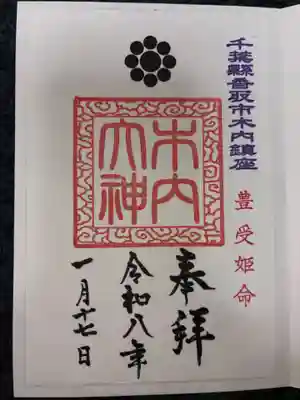 千葉縣香取市木内鎮座
豊受姫命
木内
大神
奉拝
令和八年
一月十七日